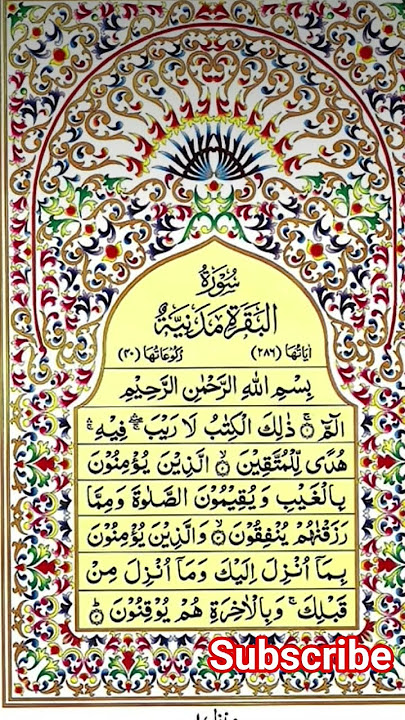 سُوْرَةُ
الْبَقَرَةِ مَدَنِيَّةٌ
اٰيَاتُهَا (٢٨٦) رُكُوْعَاتُهَا (٤٠)
بِسْمِ اللّٰهِ الرَّحْمٰنِ الرَّحِيْمِ
الٓمّٓ ۚ۝ ذٰلِكَ الْكِتٰبُ لَا رَيْبَ ۛۚ فِيْهِ ۛۚ
هُدًى لِّلْمُتَّقِيْنَ ۝ الَّذِيْنَ يُؤْمِنُوْنَ
بِالْغَيْبِ وَيُقِيْمُوْنَ الصَّلٰوةَ وَمِمَّا
رَزَقْنٰهُمْ يُنْفِقُوْنَ ۝ وَالَّذِيْنَ يُؤْمِنُوْنَ
بِمَآ اُنْزِلَ اِلَيْكَ وَمَآ اُنْزِلَ مِنْ
قَبْلِكَ ۚ وَبِالْاٰخِرَةِ هُمْ يُوْقِنُوْنَ ۝
Subscribe
منزل ١